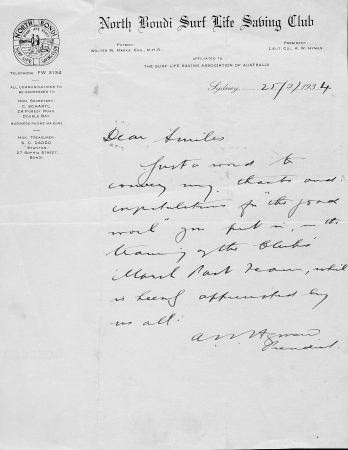 North Bondi Surf Life Saving Club
NORTH BONDI
LIFE
PATRON:
WALTER M. MARKS, ESQ., M.H.R.
PRESIDENT:
LIEUT. COL. A. W. HYMAN
AFFILIATED TO
THE SURF LIFE SAVING ASSOCIATION OF AUSTRALIA
TELEPHONE FW 5154
ALL COMMUNICATIONS TO
BE ADDRESSED TO
HON. SECRETARY:
24 FOREST ROAD,
DOUBLE BAY
HON. TREASURER:
S. C. DADDO,
27 SOPHIA STREET,
BONDI
Sydney, 1934
Dear Smiles
Just a word to
convey my thanks and
congratulations for "the good
work" you put in, in the
training of the Club's
March Past Team, which
is being appreciated by
us all.
A W Hyman
President